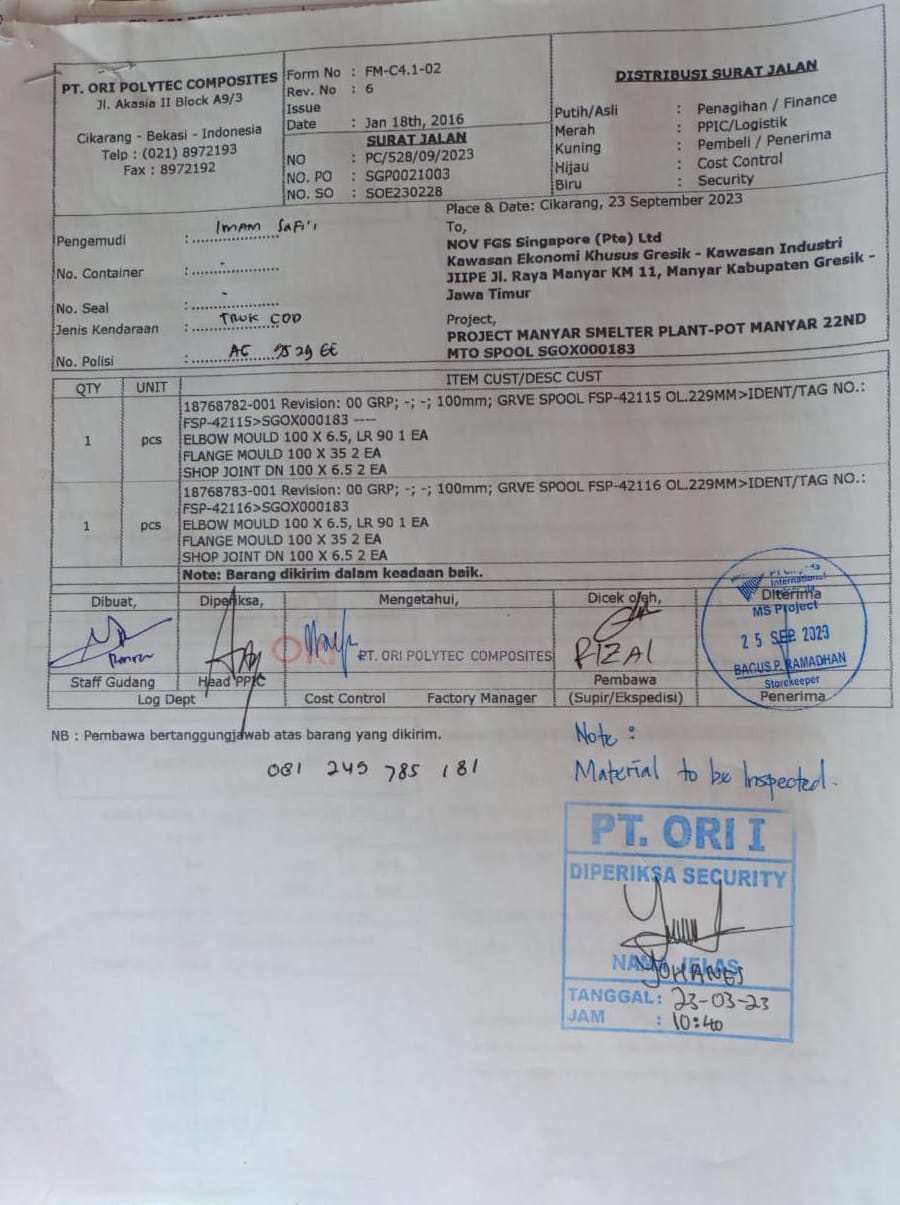 PT. ORI POLYTEC COMPOSITES
Jl. Akasia II Block A9/3
Cikarang - Bekasi - Indonesia
Telp : (021) 8972193
Fax : 8972192
Form No : FM-C4.1-02
Rev. No : 6
Issue
Date : Jan 18th, 2016
SURAT JALAN
NO : PC/528/09/2023
NO. PO : SGP0021003
NO. SO : SOE230228
DISTRIBUSI SURAT JALAN
Putih/Asli : Penagihan / Finance
Merah : PPIC/Logistik
Kuning : Pembeli / Penerima
Hijau : Cost Control
Biru : Security
Pengemudi : Imam Safi'i
No. Container : -
No. Seal : -
Jenis Kendaraan : TRUK COD
No. Polisi : AG 9529 EE
Place & Date: Cikarang, 23 September 2023
To,
NOV FGS Singapore (Pte) Ltd
Kawasan Ekonomi Khusus Gresik - Kawasan Industri
JIIPE Jl. Raya Manyar KM 11, Manyar Kabupaten Gresik -
Jawa Timur
Project,
PROJECT MANYAR SMELTER PLANT-POT MANYAR 22ND
MTO SPOOL SGOX000183
QTY UNIT ITEM CUST/DESC CUST
1 pcs
18768782-001 Revision: 00 GRP; -; -; 100mm; GRVE SPOOL FSP-42115 OL.229MM>IDENT/TAG NO.:
FSP-42115>SGOX000183 ----
ELBOW MOULD 100 X 6.5, LR 90 1 EA
FLANGE MOULD 100 X 35 2 EA
SHOP JOINT DN 100 X 6.5 2 EA
1 pcs
18768783-001 Revision: 00 GRP; -; -; 100mm; GRVE SPOOL FSP-42116 OL.229MM>IDENT/TAG NO.:
FSP-42116>SGOX000183
ELBOW MOULD 100 X 6.5, LR 90 1 EA
FLANGE MOULD 100 X 35 2 EA
SHOP JOINT DN 100 X 6.5 2 EA
Note: Barang dikirim dalam keadaan baik.
Dibuat, Diperiksa, Mengetahui, Dicek oleh, Diterima
International
MS Project
25 SEP 2023
BAGUS P. RAMADHAN
Storekeeper
PT. ORI POLYTEC COMPOSITES
RIZAL
Staff Gudang Head PPIC Pembawa
Log Dept Cost Control Factory Manager (Supir/Ekspedisi) Penerima
NB : Pembawa bertanggungjawab atas barang yang dikirim.
081 245 785 181
Note :
Material to be Inspected.
PT. ORI I
DIPERIKSA SECURITY
NAMA JELAS
YOHANES
TANGGAL: 23-03-23
JAM : 10:40